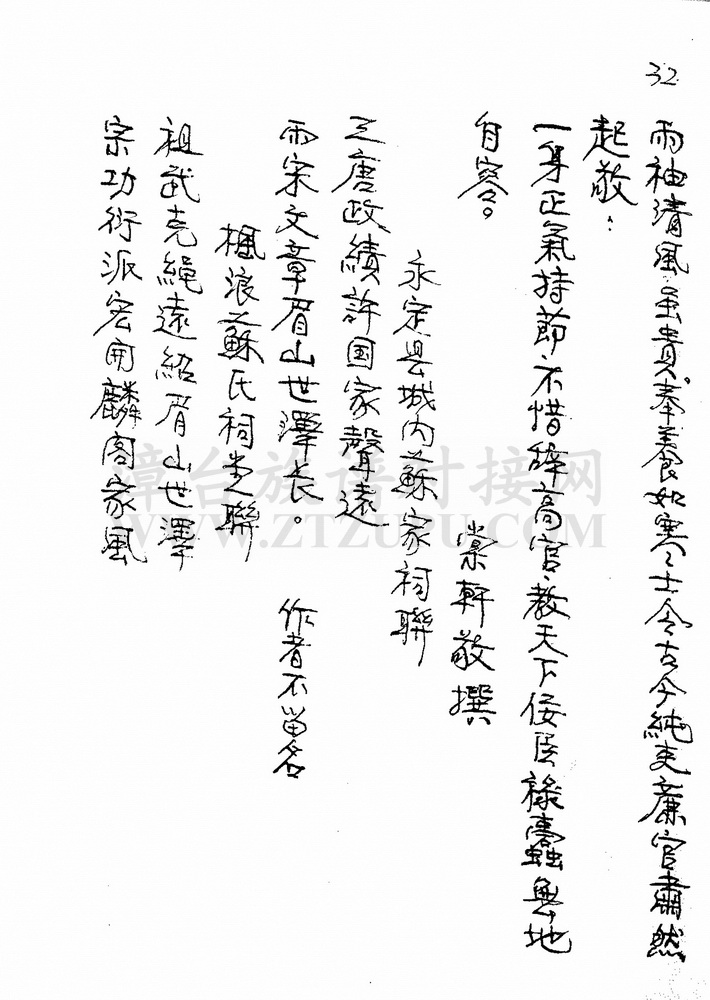 32
両袖清風虽貴奉養如寒士令古今純吏廉官肅然
起敬：
一身正氣持節不惜辞高官、教天下佞臣祿蠹無地
自容。
棠軒敬撰
永定县城内蘇家祠聯
三唐政績許国家聲遠
両宋文章眉山世澤长。
作者不留名
楓浪蘇氏祠堂聯
祖武克繩遠紹眉山世澤
宗功衍派宏開麟閣家風
漳台族谱对接网
WWW.ZTZUPU.COM